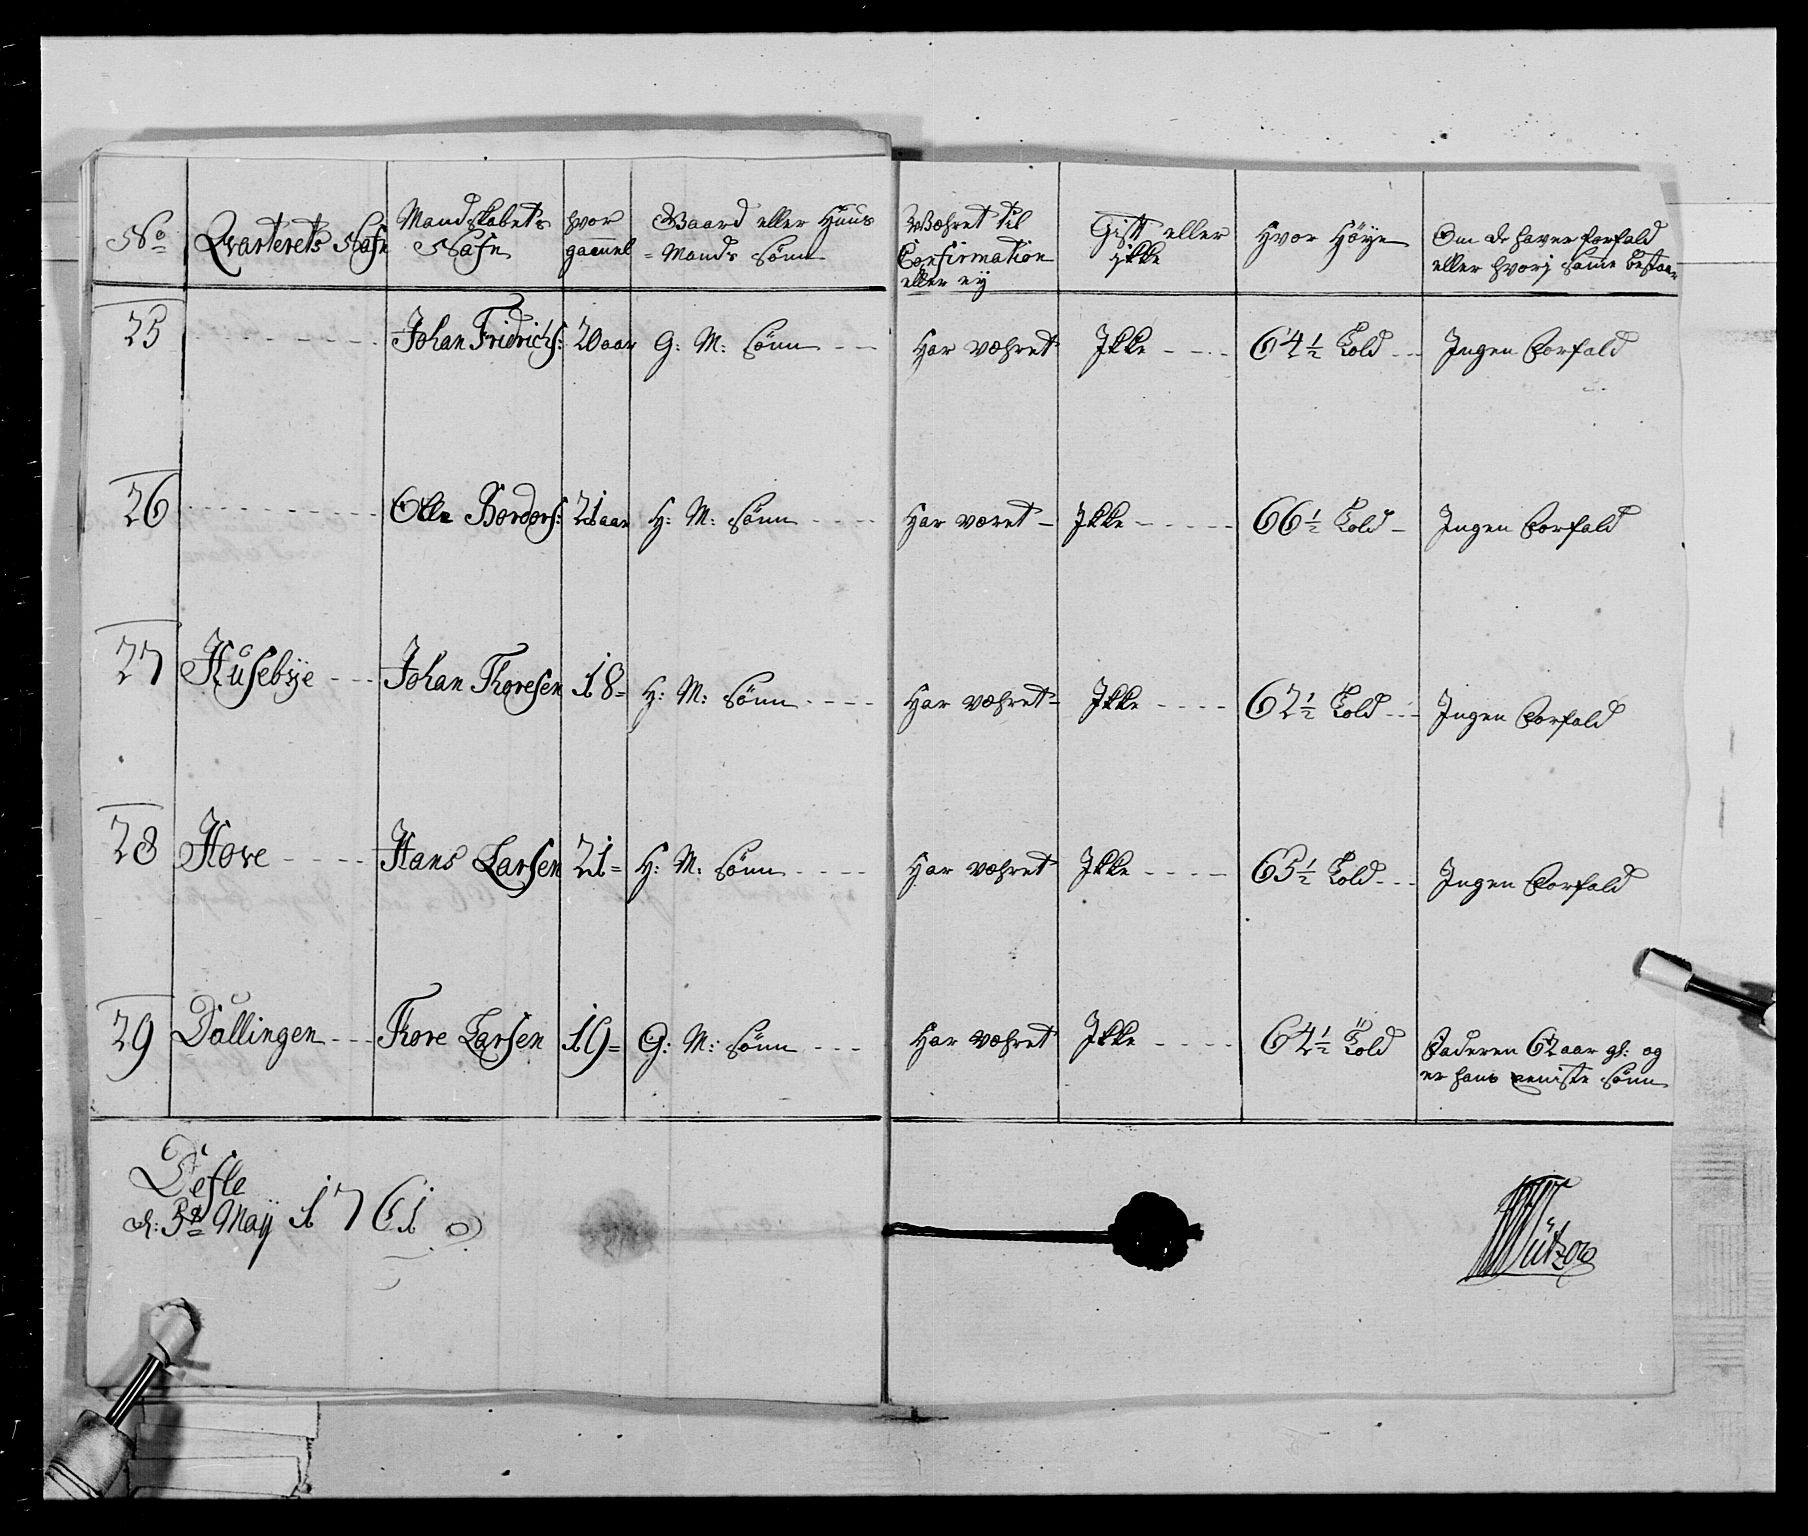 No Qvarterets Nafn Mandskabets Nafn hvor gammel Gaard eller Huus Mands Sønn Wæhret til Confirmation eller ej Gift eller ikke Hvor Høye Om de haver forfald eller hvorj same bestaar
25 Johan Fridrichs: 20 aar G: M: Sønn Har wæhret Ikke 64½ Told Ingen Forfald
26 Olle Bordors: 21 aar H: M: Sønn Har wæret Ikke 66½ Told Ingen Forfald
27 Husebye Johan Thoresen 18 = H: M: Sønn Har wæhret Ikke 62½ Told Ingen Forfald
28 Hove Hans Larsen 21 = H: M: Sønn Har wæhret Ikke 65½ Told Ingen Forfald
29 Dallingen Thore Larsen 19 = G: M: Sønn Har wæhret Ikke 64½ Told Faderen 62 aar gl: og
er hans eeniste Sønn
Defle
d: 5te Maij 1761
Wützow